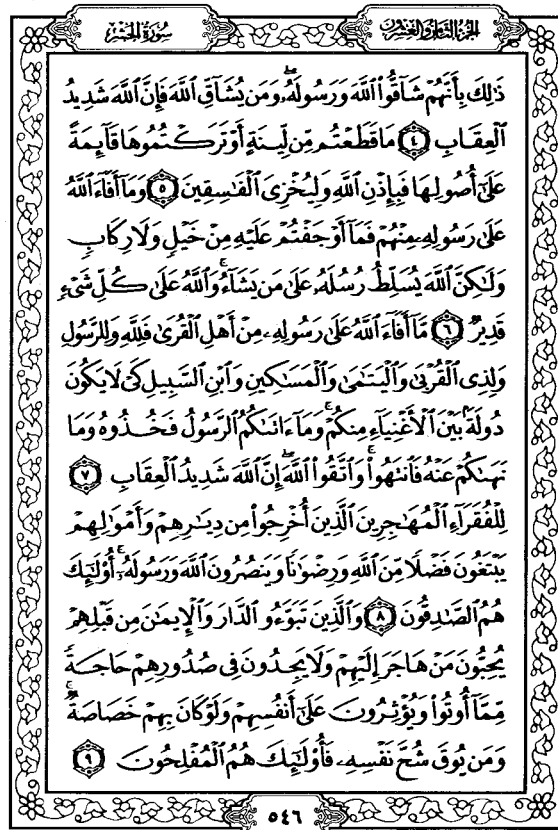 الجزء الثامن والعشرون
سورة الحشر
ذَٰلِكَ بِأَنَّهُمْ شَاقُّوا۟ ٱللَّهَ وَرَسُولَهُۥ ۖ وَمَن يُشَآقِّ ٱللَّهَ فَإِنَّ ٱللَّهَ شَدِيدُ
ٱلْعِقَابِ ٤ مَا قَطَعْتُم مِّن لِّينَةٍ أَوْ تَرَكْتُمُوهَا قَآئِمَةً
عَلَىٰٓ أُصُولِهَا فَبِإِذْنِ ٱللَّهِ وَلِيُخْزِىَ ٱلْفَٰسِقِينَ ٥ وَمَآ أَفَآءَ ٱللَّهُ
عَلَىٰ رَسُولِهِۦ مِنْهُمْ فَمَآ أَوْجَفْتُمْ عَلَيْهِ مِنْ خَيْلٍ وَلَا رِكَابٍ
وَلَٰكِنَّ ٱللَّهَ يُسَلِّطُ رُسُلَهُۥ عَلَىٰ مَن يَشَآءُ ۚ وَٱللَّهُ عَلَىٰ كُلِّ شَىْءٍ
قَدِيرٌ ٦ مَّآ أَفَآءَ ٱللَّهُ عَلَىٰ رَسُولِهِۦ مِنْ أَهْلِ ٱلْقُرَىٰ فَلِلَّهِ وَلِلرَّسُولِ
وَلِذِى ٱلْقُرْبَىٰ وَٱلْيَتَٰمَىٰ وَٱلْمَسَٰكِينِ وَٱبْنِ ٱلسَّبِيلِ كَىْ لَا يَكُونَ
دُولَةًۢ بَيْنَ ٱلْأَغْنِيَآءِ مِنكُمْ ۚ وَمَآ ءَاتَىٰكُمُ ٱلرَّسُولُ فَخُذُوهُ وَمَا
نَهَىٰكُمْ عَنْهُ فَٱنتَهُوا۟ ۚ وَٱتَّقُوا۟ ٱللَّهَ ۖ إِنَّ ٱللَّهَ شَدِيدُ ٱلْعِقَابِ ٧
لِلْفُقَرَآءِ ٱلْمُهَٰجِرِينَ ٱلَّذِينَ أُخْرِجُوا۟ مِن دِيَٰرِهِمْ وَأَمْوَٰلِهِمْ
يَبْتَغُونَ فَضْلًا مِّنَ ٱللَّهِ وَرِضْوَٰنًا وَيَنصُرُونَ ٱللَّهَ وَرَسُولَهُۥٓ ۚ أُو۟لَٰٓئِكَ
هُمُ ٱلصَّٰدِقُونَ ٨ وَٱلَّذِينَ تَبَوَّءُو ٱلدَّارَ وَٱلْإِيمَٰنَ مِن قَبْلِهِمْ
يُحِبُّونَ مَنْ هَاجَرَ إِلَيْهِمْ وَلَا يَجِدُونَ فِى صُدُورِهِمْ حَاجَةً
مِّمَّآ أُوتُوا۟ وَيُؤْثِرُونَ عَلَىٰٓ أَنفُسِهِمْ وَلَوْ كَانَ بِهِمْ خَصَاصَةٌ ۚ
وَمَن يُوقَ شُحَّ نَفْسِهِۦ فَأُو۟لَٰٓئِكَ هُمُ ٱلْمُفْلِحُونَ ٩
٥٤٦